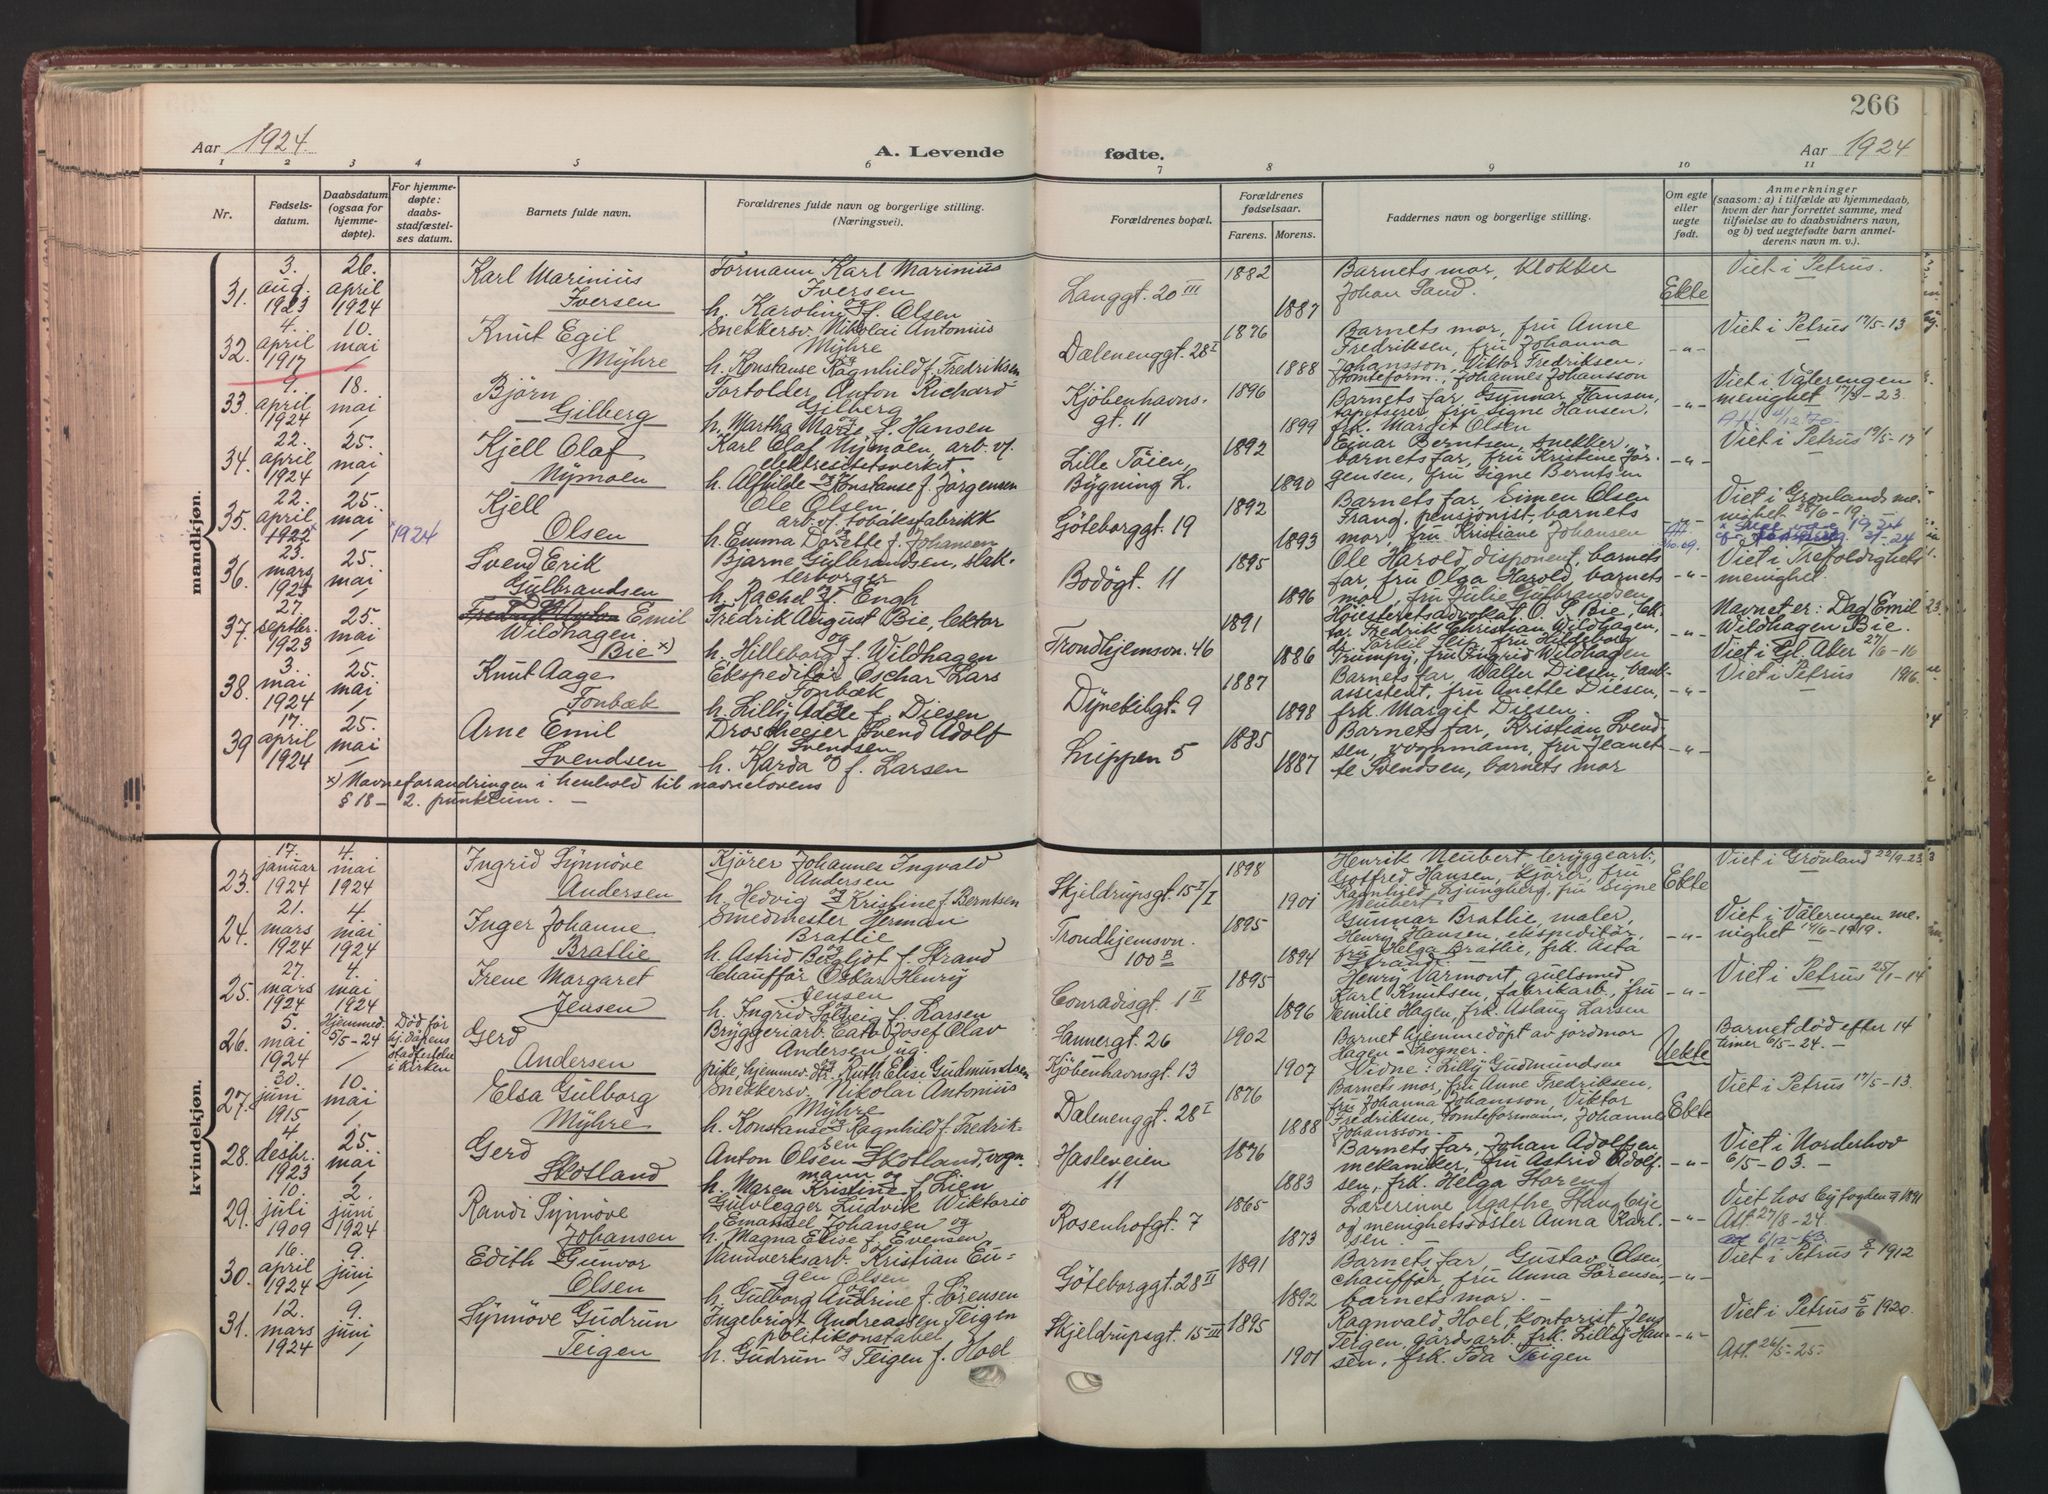 266
Aar 1924.
A. Levende
fødte.
Aar 1924
1 2 3 4 5 6 7 8 9 10 11
Nr.
Fødsels-
datum.
Daabsdatum
(ogsaa for
hjemme-
døpte).
For hjemme-
døpte:
daabs-
stadfæstel-
ses datum.
Barnets fulde navn.
Forældrenes fulde navn og borgerlige stilling.
(Næringsvei).
Forældrenes bopæl.
Forældrenes
fødselsaar.
Farens. Morens.
Faddernes navn og borgerlige stilling.
Om egte
eller
uegte
født.
Anmerkninger
(saasom: a) i tilfælde av hjemmedaab,
hvem der har forrettet samme, med
tilføielse av to daabsvidners navn,
og b) ved uegtefødte barn anmel-
derens navn m. v.).
mandkjøn.
31.
3.
aug.
1923
26.
april
1924
Karl Marinius
Iversen
Formann Karl Marinius
Iversen
og
h. Karoline f. Olsen
Langgt. 20 III
1882
1887
Barnets mor, klokker
Johan Sand.
Ekte
Viet i Petrus.
32.
4.
april
1917
10.
mai
/
Knut Egil
Myhre
Snekkersv. Nikolai Antonius
Myhre
og
h. Konstanse Ragnhild f. Fredriksen
Dalenenggt. 28 I
1876
1888
Barnets mor, fru Anne
Fredriksen, fru Johanna
Johansson, Viktor Fredriksen,
tomteform., Johannes Johansson
-"-
Viet i Petrus 17/5-13
33.
9.
april
1924
18.
mai
/
Bjørn
Gilberg
Fortolder Anton Richard
Gilberg
og
h. Martha Marie f. Hansen
Kjøbenhavns-
gt. 11
1896
1899
Barnets far, Gunnar Hansen,
tapetserer, fru Signe Hansen,
frk. Margit Olsen
-"-
Viet i Vålerengen
menighet 17/3-23.
Att. 4/12 70.
34.
22.
april
1924
25.
mai
/
Kjell Olaf
Nymoen
Karl Olaf Nymoen, arb. v/
elektrisitetsverket
og
h. Alfhilde Konstanse f. Jørgensen
Lille Tøien,
Bygning L.
1892
1890
Einar Berntsen, snekker,
barnets far, fru Kristine Jør-
gensen, fru Signe Berntsen
-"-
Viet i Petrus 19/5-17
35.
22.
april
1922 x
25.
mai
/
x 1924
Kjell
Olsen
Ole Olsen,
arb. v/ tobaksfabrikk
og
h. Emma Dorette f. Johansen
Göteborggt. 19
1892
1893
Barnets far, Simen Olsen
Frang, pensionist, barnets
mor, fru Kristiane Johansen
Viet i Grønlands me-
nighet 28/6-19.
x Skal være 1924
36.
23.
mars
1923
25.
mai
/
Svend Erik
Gulbrandsen
Bjarne Gulbrandsen, slak-
terborger
og
h. Rachel f. Engh
Bodögt. 11
1895
1896
Ole Harold, disponent, barnets
far, fru Olga Harold, barnets
mor, fru Julie Gulbrandsen
-"-
Viet i Trefoldighets
menighet.
37.
27.
septbr.
1923
25.
mai
/
Emil
Wildhagen
Bie x)
Fredrik August Bie, lektor
og
h. Hilleborg f. Wildhagen
Trondhjemsv. 46
1891
1886
Høiesteretsadvokat O. S. Bie, lek-
tor Fredrik Christian Wildhagen,
fru Hildeborg
Trumpy, fru Ingrid Wildhagen
-"-
Navnet er: Dag Emil
Wildhagen Bie.
Viet i Gl. Aker 27/6-16
38.
3.
mai
1924
25.
mai
/
Knut Aage
Fonbæk
Ekspeditør Oschar Lars
Fonbæk
og
h. Lilly Adele f. Diesen
Dynekilgt. 9
1887
1898
Barnets far, Walter Diesen, bank-
assistent, fru Anette Diesen,
frk. Margit Diesen.
-"-
Viet i Petrus 1916.
39
17.
april
1924
25.
mai
/
Arne Emil
Svendsen
Droscheeier Svend Adolf
Svendsen
og
h. Karda f. Larsen
Snippen 5
1885
1887
Barnets far, Kristian Svend-
sen, vognmann, fru Jeanet-
te Svendsen, barnets mor
-"-
x) Navneforandringen i henhold til navnelovens
§ 18 - 2. punktum. -
kvindekjøn.
23.
17.
januar
1924
4.
mai
1924
Ingrid Synnöve
Andersen
Kjører Johannes Ingvald
Andersen
og
h. Hedvig Kristine f. Berntsen
Skjeldrupsgt. 15 I/I
1898
1901
Henrik Neubert bryggearb.,
Gotfred Hansen, kjører, fru
Ragnhild Ljungberg, fru Signe
Neubert
Ekte
Viet i Grönland 22/9-23
24.
21.
mars
1924
4.
mai
1924
Inger Johanne
Bratlie
Smedmester Herman
Bratlie
og
h. Astrid Bergljot f. Strand
Trondhjemsv.
100 B
1895
1894
Gunnar Bratlie, maler,
Henry Hansen, ekspeditør,
fru Helga Bratlie, frk. Asta
Strand.
-"-
Viet i Vålerengen me-
nighet 14/6-1919.
25.
27.
mars
1924
4.
mai
1924
Irene Margaret
Jensen
Chauffør Oskar Henry
Jensen
og
h. Ingrid Solveig f. Larsen
Conradisgt. 1 II
1895
1896
Henry Varmont gullsmed,
Karl Knutsen, fabrikarb., fru
Emilie Hagen, frk. Aslaug Larsen
-"-
Viet i Petrus 25/1-14
26.
5.
mai
1924
Hjemmed.
5/5-24
/
Død før
hj.dåpens
stadfestelse
i kirken
Gerd
Andersen
Bryggeriarb. Cato Josef Olav
Andersen, ug.
og
pike, hjemmed. dtr. Ruth Elise Gudmundsen
Sannergt. 26
Kjøbenhavnsgt. 13
1902
1907
Barnet hjemmedöpt av jordmor
Hagen - Frogner.
Vidne: Lilly Gudmundsen
Uekte
Barnet död efter 14
timer 6/5-24. -
27.
30.
juni
1915
10.
mai
/
Elsa Gulborg
Myhre
Snekkersv. Nikolai Antonius
Myhre
og
h. Konstanse Ragnhild f. Fredrik-
sen
Dalenenggt. 28 I
1876
1888
Barnets mor, fru Anne Fredriksen,
fru Johanna Johansson, Viktor
Fredriksen, tomteformann, Johannes
Johansson.
Ekte
Viet i Petrus 17/5-13.
28.
4
desbr.
1923
25.
mai
/
Gerd
Skotland
Anton Olsen Skotland, vogn-
mann og
h. Maren Kristine f. Lien
Hasleveien
11
1876
1883
Barnets far, Johan Adolfsen
mekaniker, fru Astrid Adolf-
sen, frk. Helga Storeng
-"-
Viet i Norderhov
6/5-03. -
29.
10.
juli
1909
2.
juni
1924
Randi Synnöve
Johansen
Gulvlegger Ludvik Wiktorio
Emanuel Johansen og
h. Magna Elise f. Evensen
Rosenhofgt. 7
1865
1873
Lærerinne Agathe Stangebye
og menighetssøster Anna Karl-
sen.
-"-
Viet hos byfogden 1891
Att. 27/8-24.
att 6/12-63.
30.
16.
april
1924
9.
juni
/
Edith Gunvor
Olsen
Vannverksarb. Kristian Eu-
gen Olsen
og
h. Gulborg Andrine f. Sørensen
Göteborggt. 28 II
1891
1892
Barnets far, Gustav Olsen,
chauffør, fru Anna Sørensen,
barnets mor. -
-"-
Viet i Petrus 8/1 1912
31.
12.
mars
1924
9.
juni
/
Synnöve Gudrun
Teigen
Ingebrigt Andreassen Teigen
politikonstabel
og
h. Gudrun Teigen f. Hoel
Skjeldrupsgt. 15 III
1895
1901
Ragnvald Hoel, kontorist, Jens
Teigen, gårdsarb., frk. Lilly Han-
sen, frk. Ida Teigen
-"-
Viet i Petrus 5/6 1920.
Att. 26/5-25.